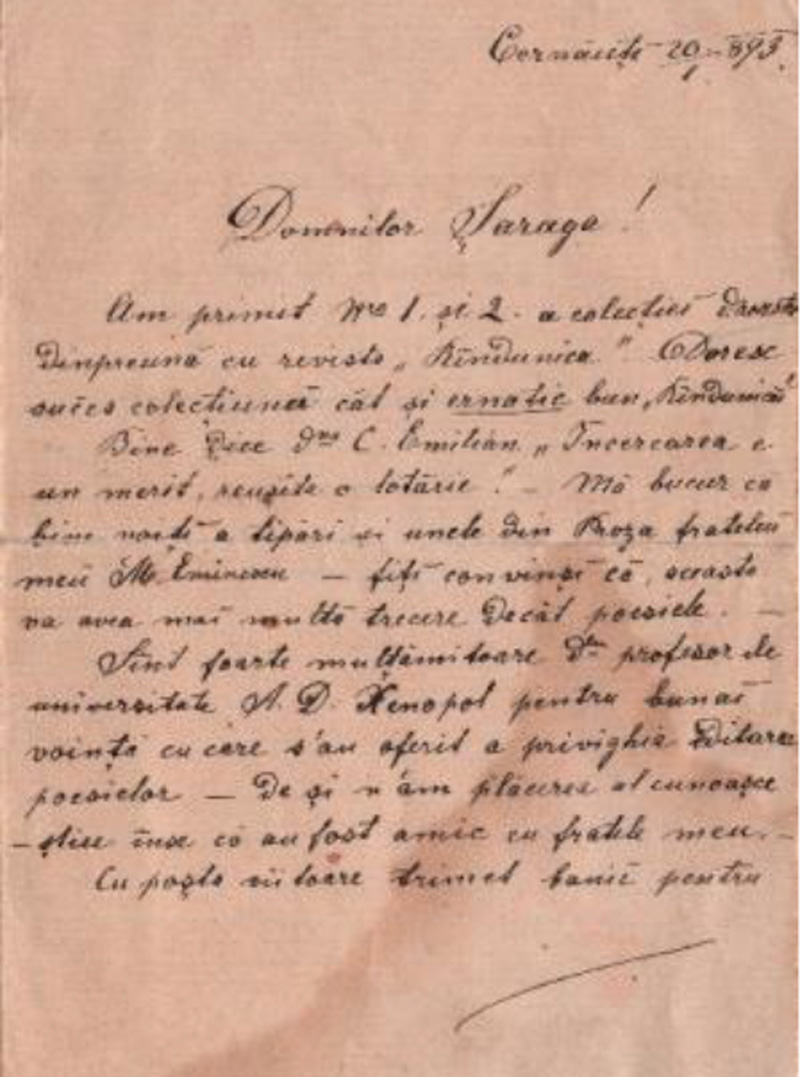 Cornăcite 20/1 893.
Domnilor Șaraga!
Am primit Nro 1. și 2. a colecției
dinpreună cu revista „Rîndunica." Doresc
succes colecțiuneĭ căt și ban „Rîndunicăĭ
Bine Dice dna C. Emilian „Incercarea e
un merit, reușita o lotărie!" – Mă bucur că
bine voiți a tipări și unele din Proza fratelui
meŭ M. Eminescu – fiți convinși că, aceasta
va avea mai multă trecere decăt poesiele. –
Sînt foarte mulțămitoare Dlu profesor de
universitate A. D. Xenopol pentru buna
voință cu care s'au oferit a privighia Editarea
poesielor – De și n'am plăcerea al cunoașce
– știu însă că au fost amic cu fratele meu. –
Cu poșta viitoare trimet baniĭ pentru